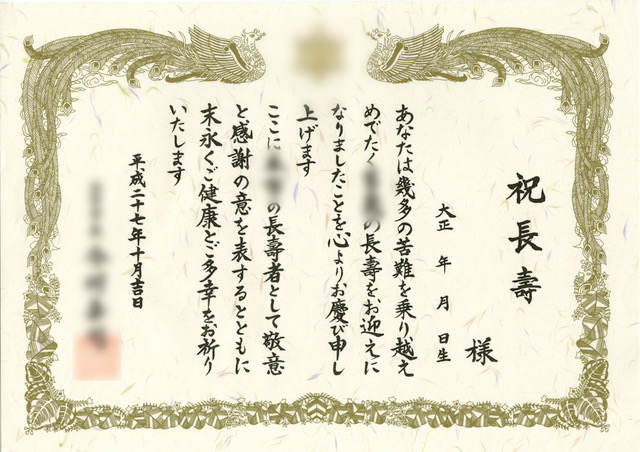 祝長壽
様
大正 年 月 日生
あなたは幾多の苦難を乗り越え
めでたく の長壽をお迎えに
なりましたことを心よりお慶び申し
上げます
ここに の長壽者として敬意
と感謝の意を表するとともに
末永くご健康とご多幸をお祈り
いたします
平成二十七年十月吉日